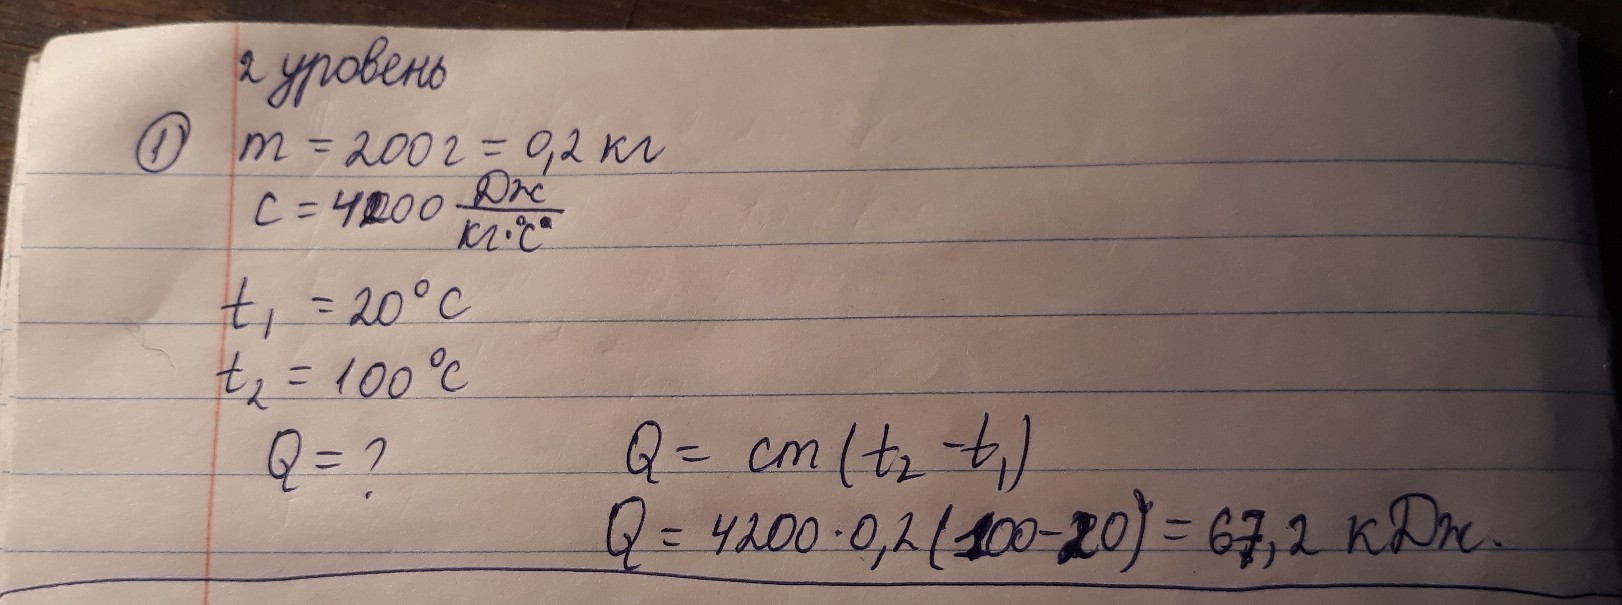 2 уровень
① m = 200 г = 0,2 кг
c = 4200 Дж/кг·°C
t₁ = 20°C
t₂ = 100°C
Q = ? Q = cm(t₂ - t₁)
Q = 4200·0,2(100-20) = 67,2 кДж.